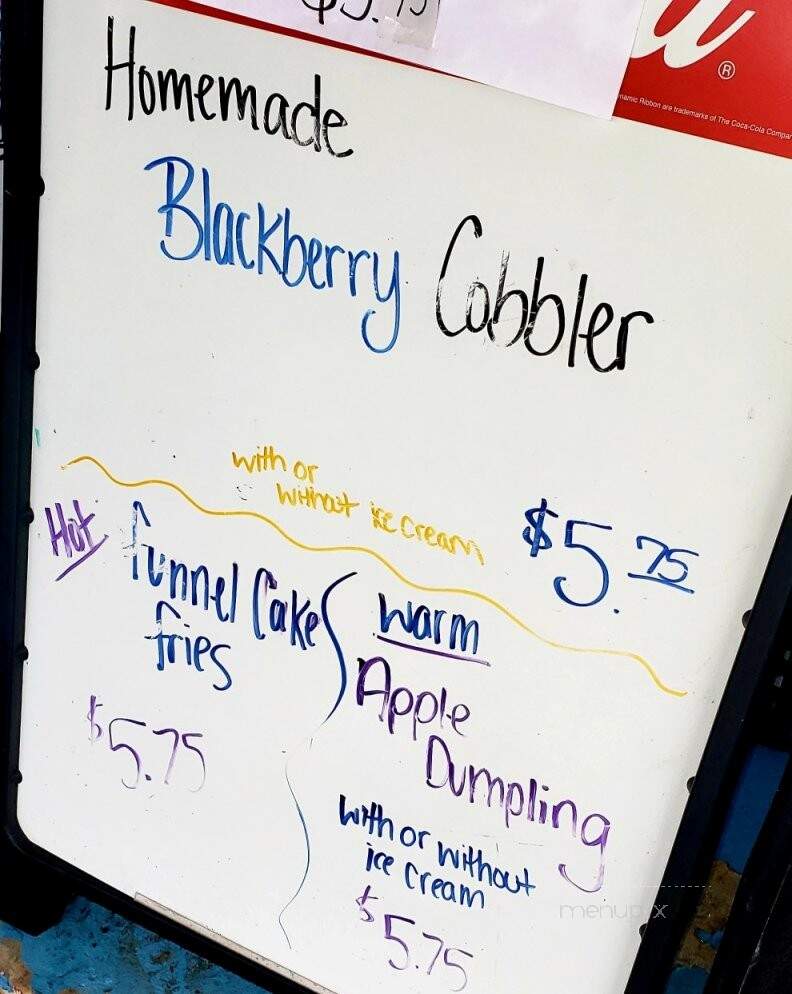 $5.75
®
namic Ribbon are trademarks of The Coca-Cola Compan
Homemade
Blackberry Cobbler
with or
without ice cream
$5.75
Hot funnel Cake
fries
$5.75
warm
Apple
Dumpling
with or without
ice cream
$5.75
menupix